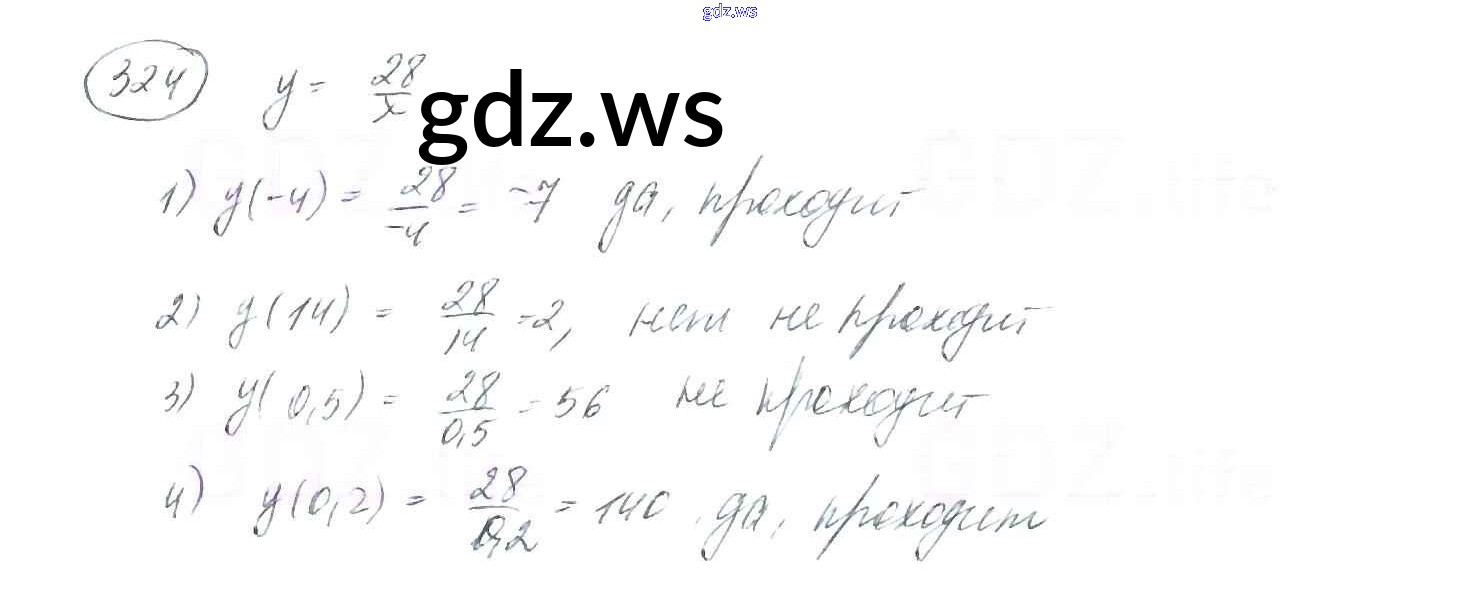 gdz.ws
324 y = 28/x
gdz.ws
1) y(-4) = 28/-4 = -7 да, проходит
2) y(14) = 28/14 = 2, нет не проходит
3) y(0,5) = 28/0,5 = 56 не проходит
4) y(0,2) = 28/0,2 = 140, да, проходит